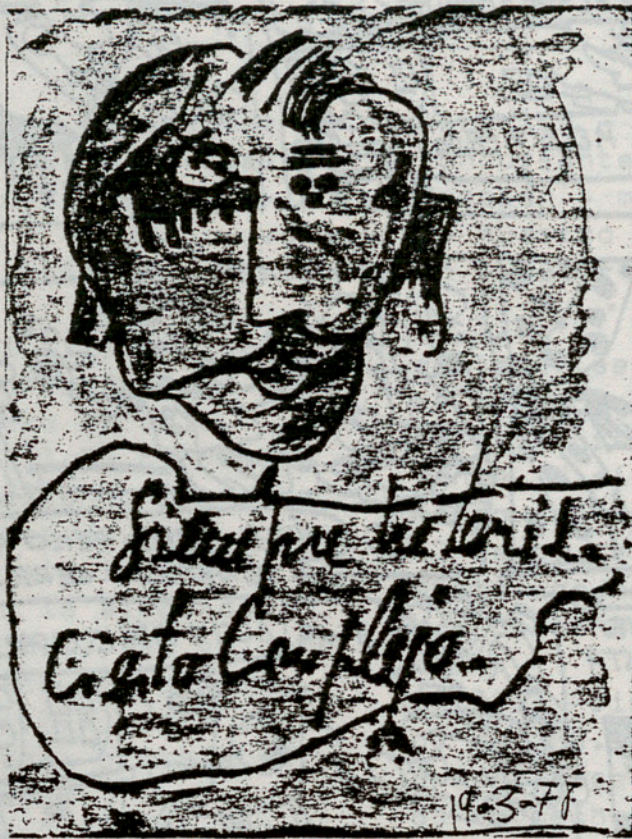 Siempre he tenido
cierto Complejo..
19-3-78